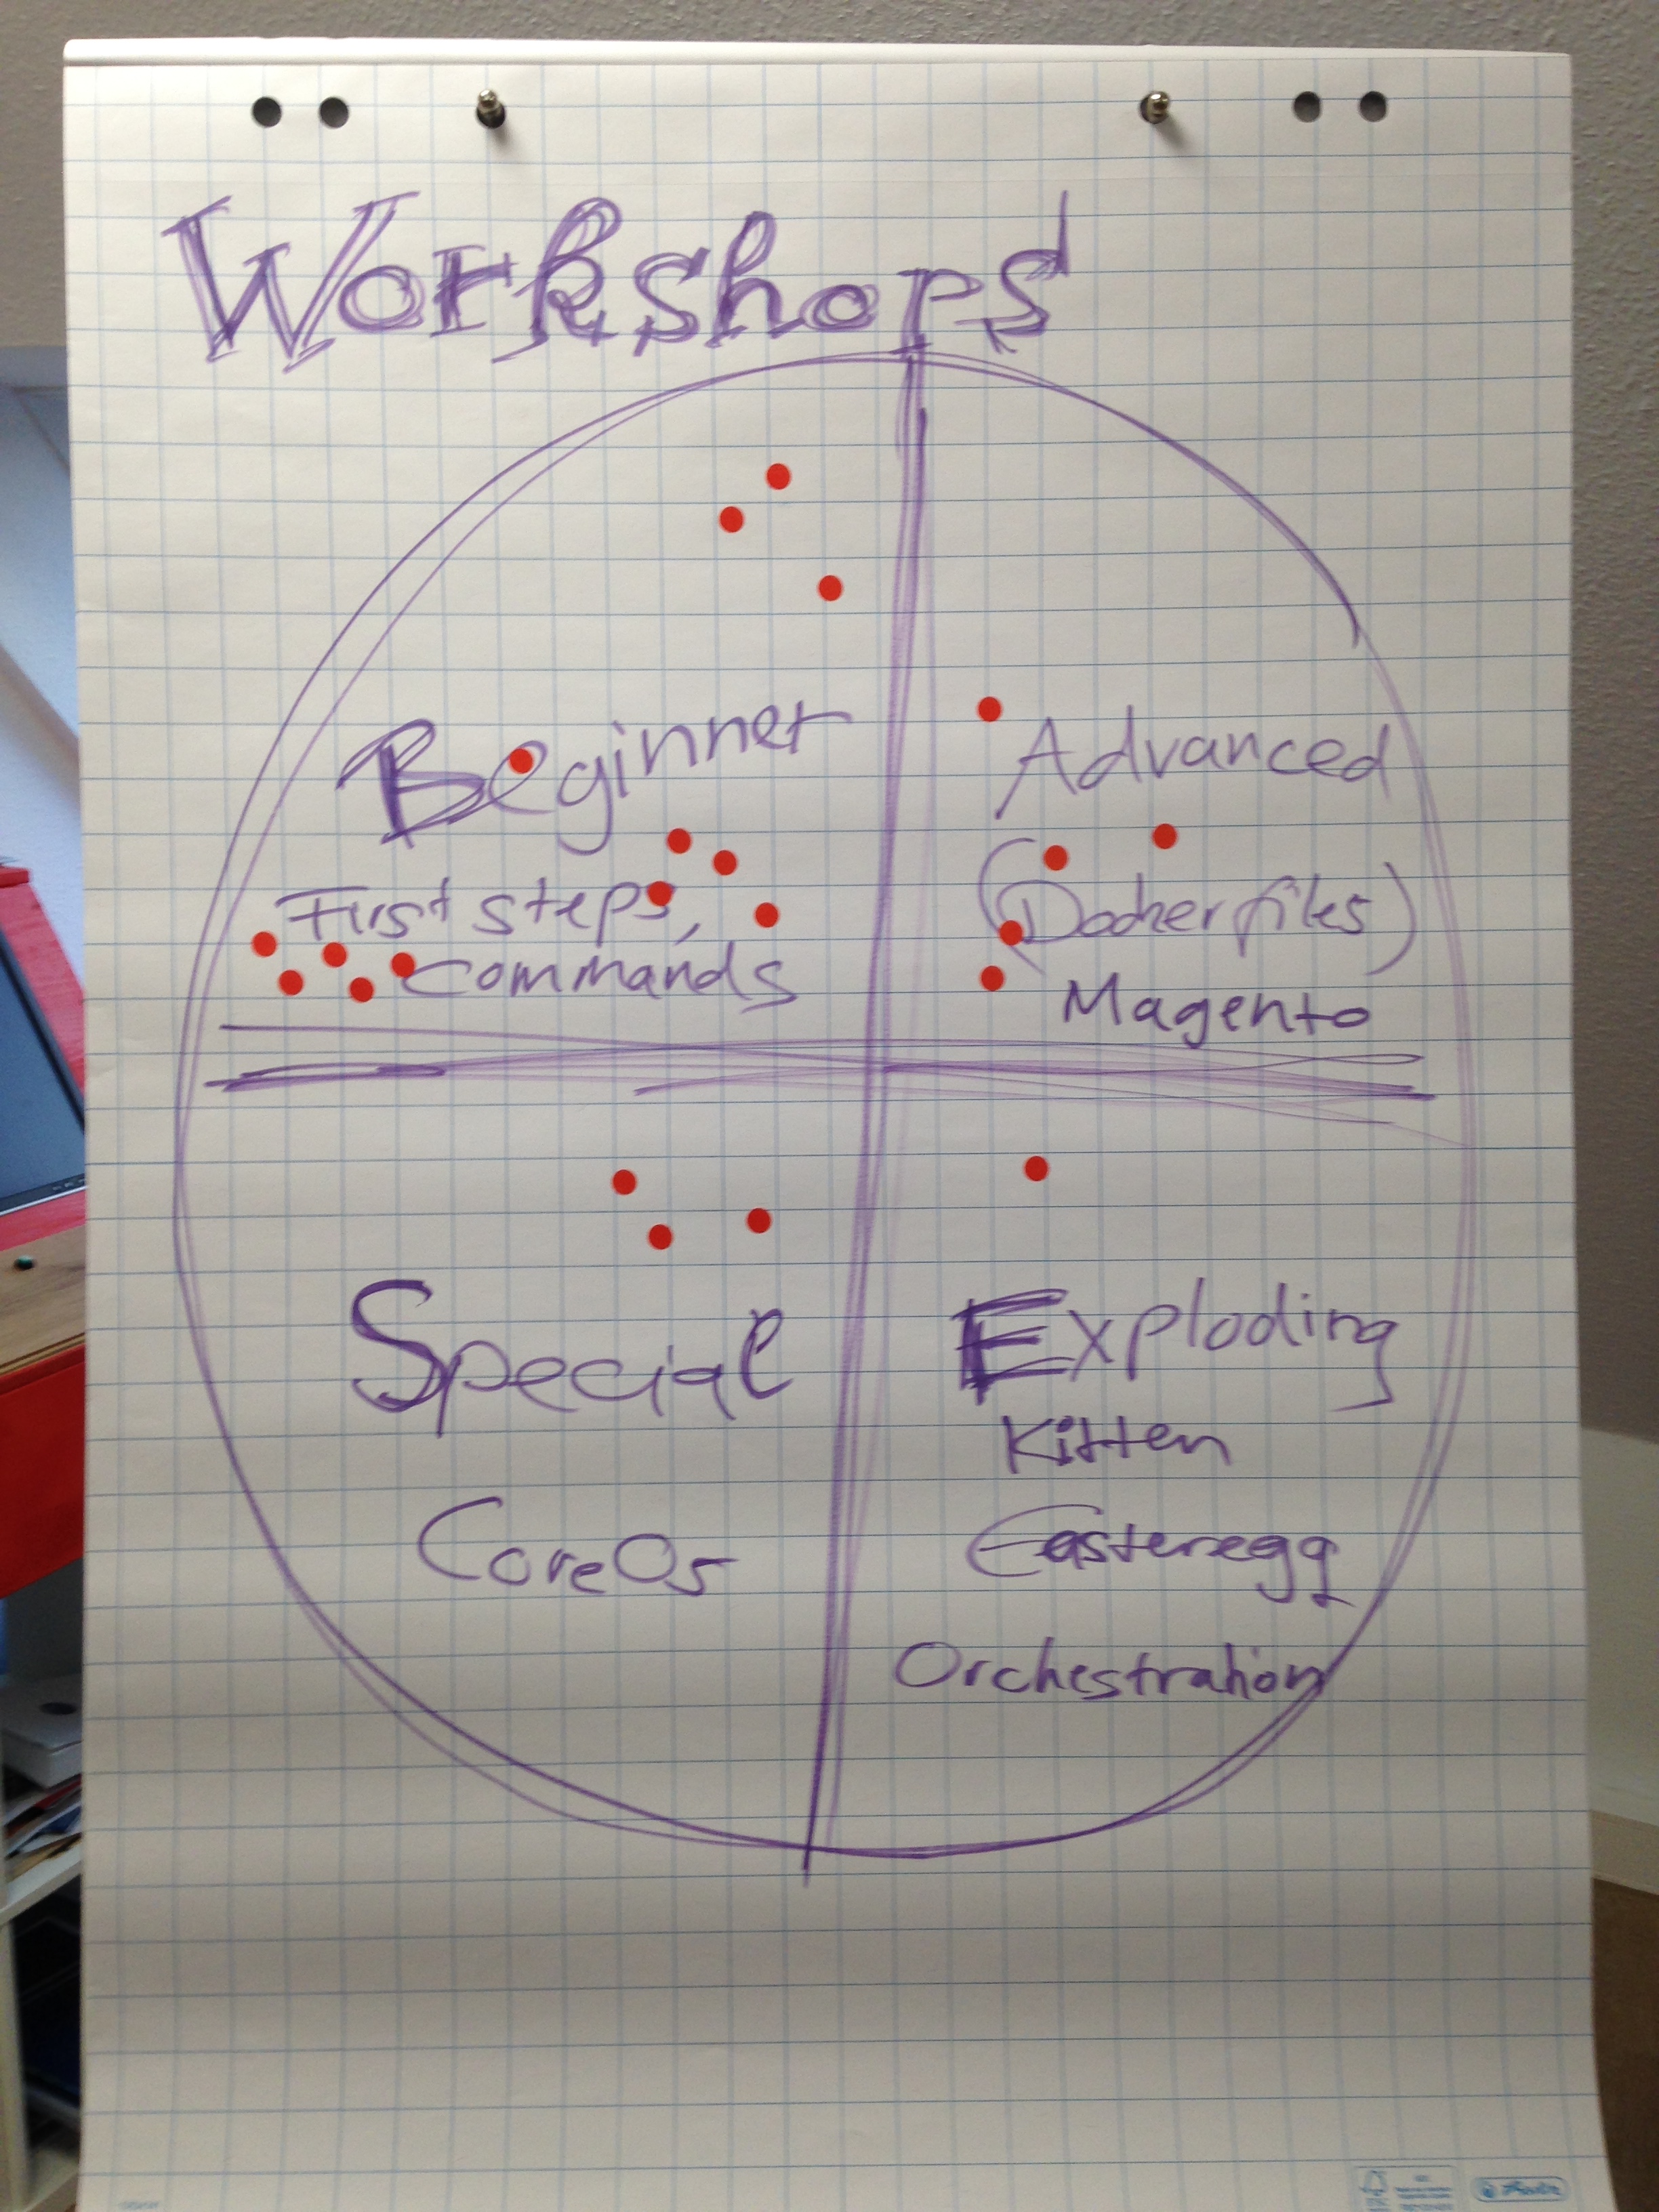 Workshops
Beginner
First steps,
commands
Advanced
(Dockerfiles)
Magento
Special
CoreOs
Exploding
Kitten
Easteregg
Orchestration